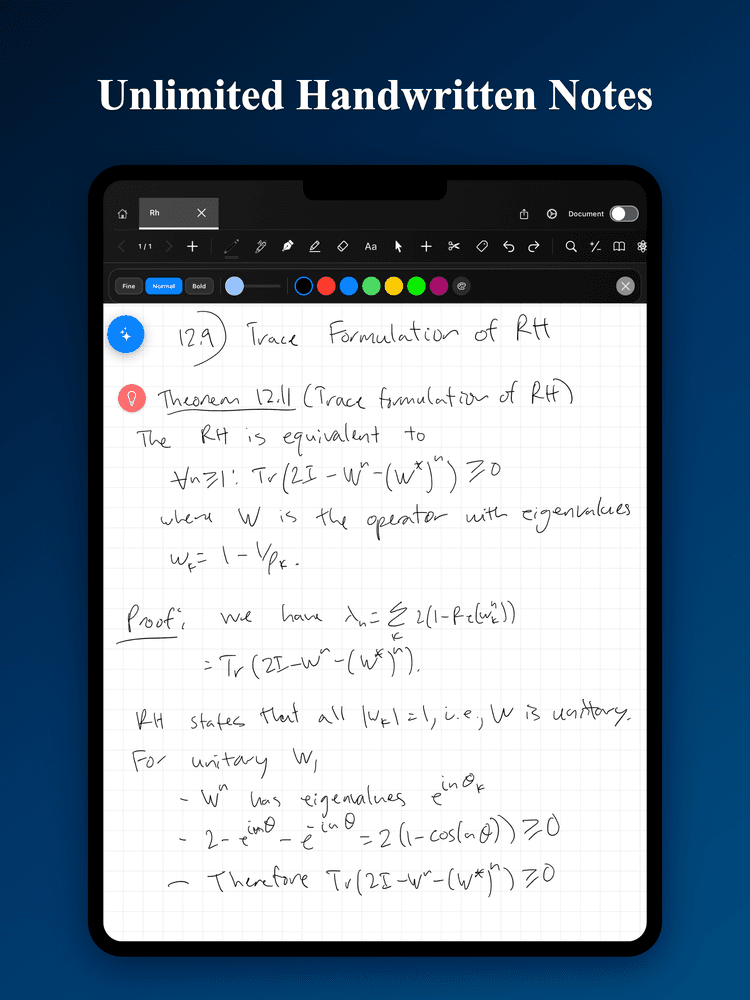 Unlimited Handwritten Notes
Rh
Document
1/1
Aa
Fine Normal Bold
12.9) Trace Formulation of RH
Theorem 12.11 (Trace formulation of RH)
The RH is equivalent to
∀n≥1: Tr(2I - Wⁿ - (W*)ⁿ) ≥ 0
where W is the operator with eigenvalues
wₖ = 1 - 1/ρₖ.
Proof: we have λₙ = ∑ₖ 2(1-Re(wₖⁿ))
= Tr(2I - Wⁿ - (W*)ⁿ).
RH states that all |wₖ| = 1, i.e., W is unitary.
For unitary W,
- Wⁿ has eigenvalues e^{inθₖ}
- 2 - e^{inθ} - e^{-inθ} = 2(1-cos(nθ)) ≥ 0
- Therefore Tr(2I - Wⁿ - (W*)ⁿ) ≥ 0